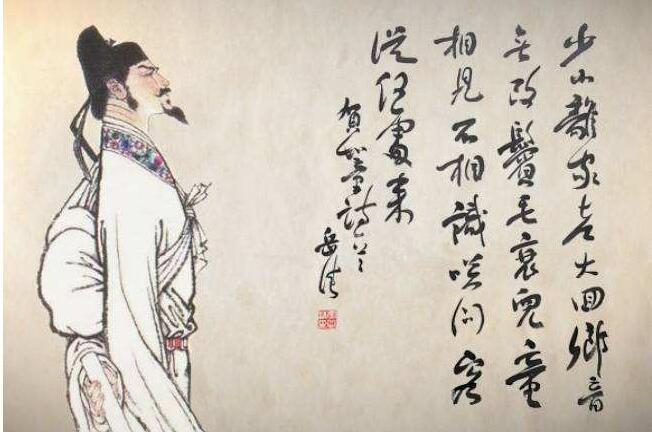 少小離家老大回鄉音
無改鬢毛衰兒童
相見不相識咲問客
從何處來
賀知章詩
岳